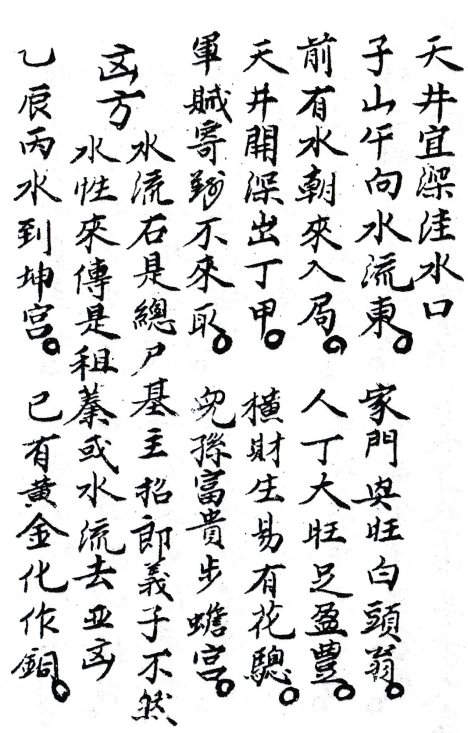 天井宜深洼水口
子山午向水流東。 家門與旺白頭翁。
前有水朝來入局。 人丁大旺足盈豊。
天井開深出丁甲。 橫財生易有花驄。
軍賊寄 不來取。 兒孫富貴步蟾宮。
水流石是總尸基主招郎義子不然
凶方
水性來傳是祖蓁或水流去並凶
乙辰丙水到坤宮。 已有黃金化作銅。